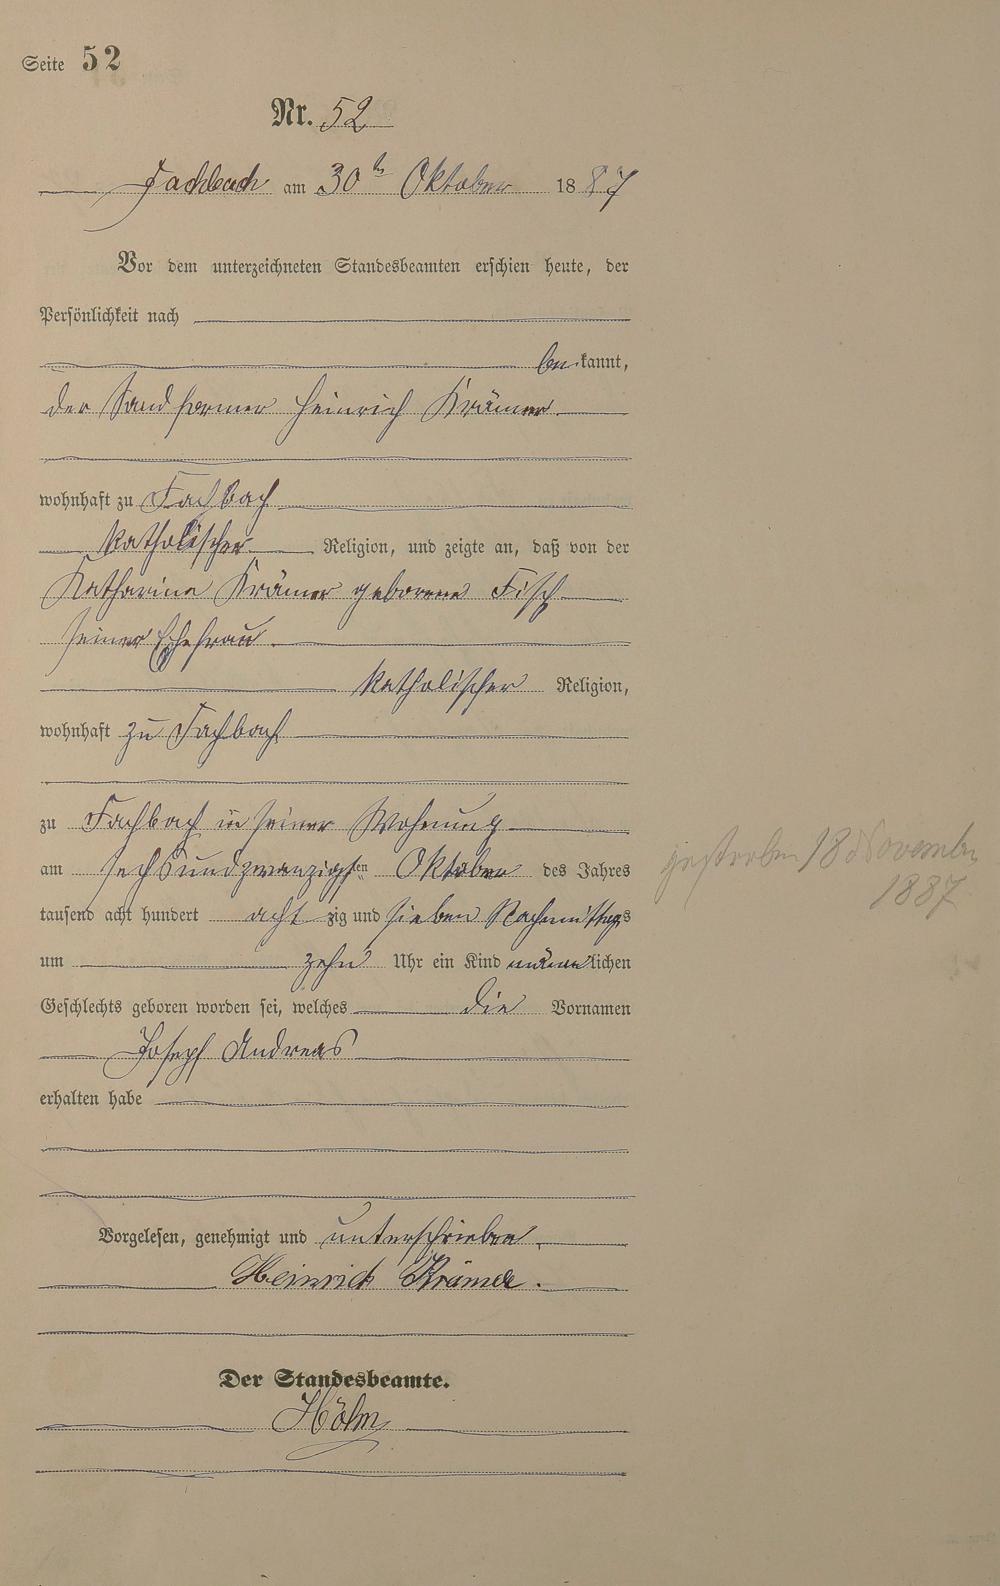 Seite 52
Nr. 52
Fachbach am 30ten Oktober 1887
Vor dem unterzeichneten Standesbeamten erschien heute, der
Persönlichkeit nach
bekannt,
der Sandformer Heinrich Krämer
wohnhaft zu Fachbach
katholischer Religion, und zeigte an, daß von der
Katharina Krämer geborene Fisch
seiner Ehefrau
katholischer Religion,
wohnhaft zu Fachbach
zu Fachbach in seiner Wohnung
am sechsundzwanzigsten Oktober des Jahres
tausend acht hundert achtzig und sieben Nachmittags
um zehn Uhr ein Kind männlichen
Geschlechts geboren worden sei, welches die Vornamen
Joseph Andreas
erhalten habe
Vorgelesen, genehmigt und unterschrieben
Heinrich Krämer.
Der Standesbeamte.
gestorben 18 November
1887